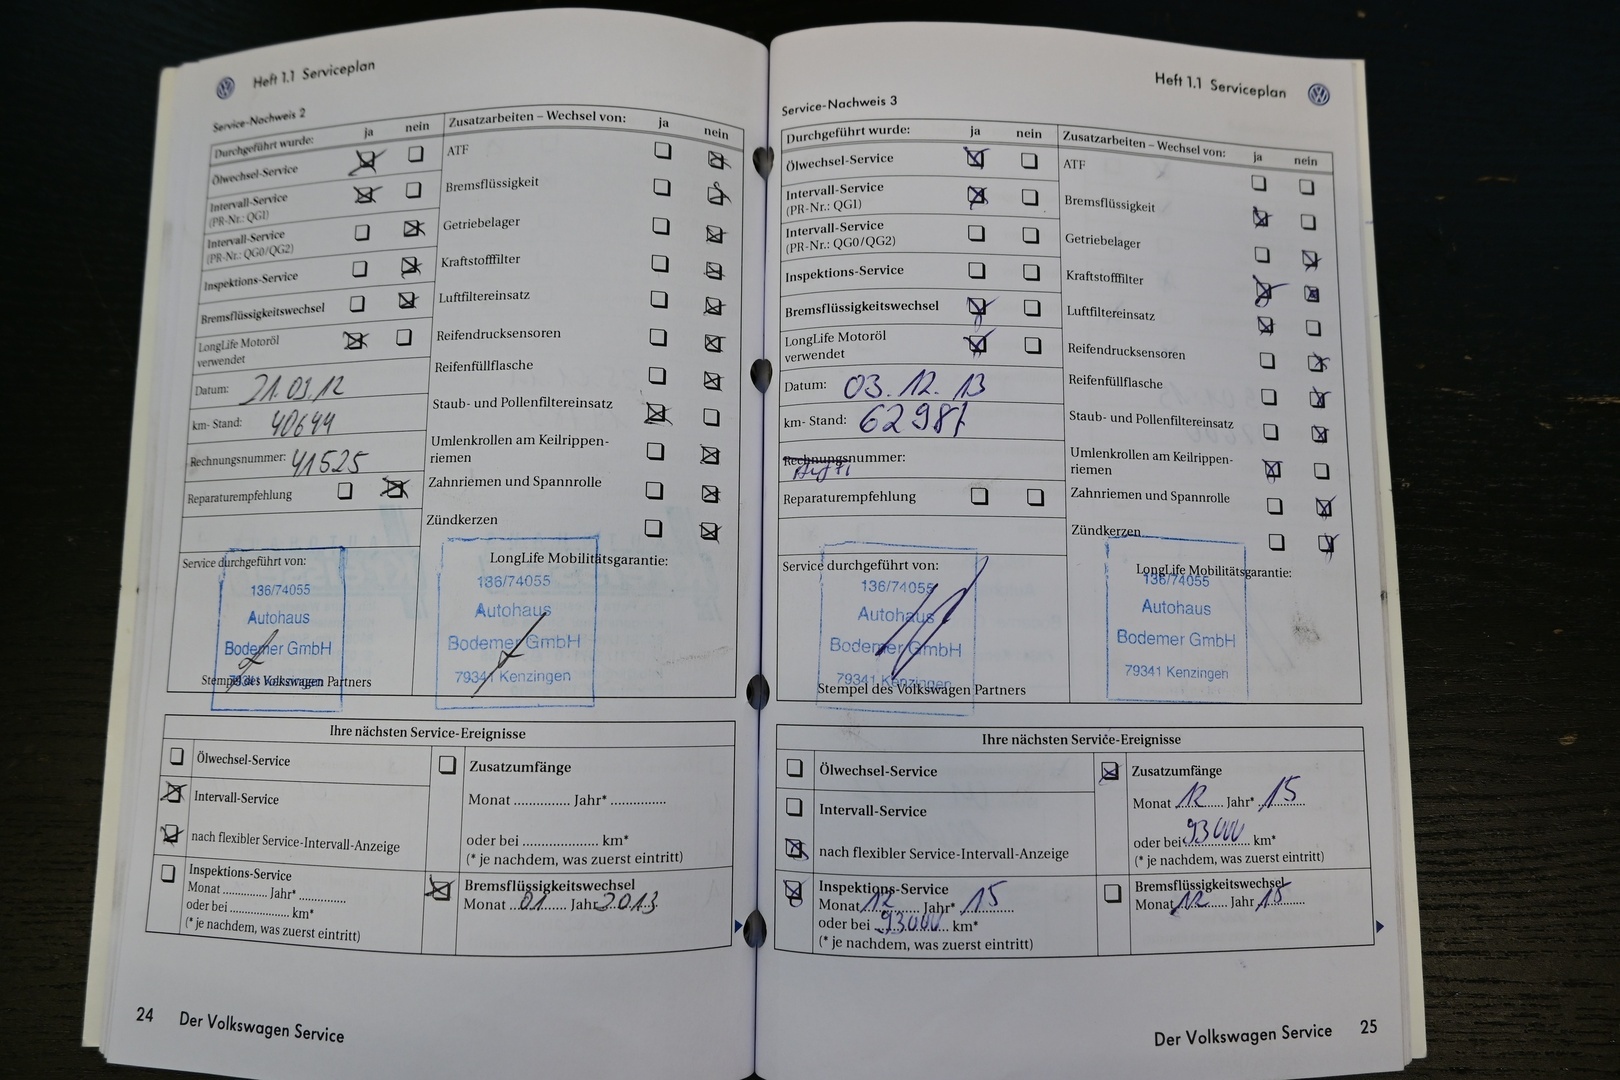 Heft 1.1 Serviceplan
Service-Nachweis 2
Durchgeführt wurde: ja nein
Ölwechsel-Service
Intervall-Service
(PR-Nr.: QG1)
Intervall-Service
(PR-Nr.: QG0/QG2)
Inspektions-Service
Bremsflüssigkeitswechsel
LongLife Motoröl
verwendet
Datum: 21.03.12
km- Stand: 40644
Rechnungsnummer: 41525
Reparaturempfehlung
Zusatzarbeiten – Wechsel von: ja nein
ATF
Bremsflüssigkeit
Getriebelager
Kraftstofffilter
Luftfiltereinsatz
Reifendrucksensoren
Reifenfüllflasche
Staub- und Pollenfiltereinsatz
Umlenkrollen am Keilrippen-
riemen
Zahnriemen und Spannrolle
Zündkerzen
Service durchgeführt von:
136/74055
Autohaus
Bodemer GmbH
79341 Kenzingen
Stempel des Volkswagen Partners
LongLife Mobilitätsgarantie:
136/74055
Autohaus
Bodemer GmbH
79341 Kenzingen
Ihre nächsten Service-Ereignisse
Ölwechsel-Service
Intervall-Service
nach flexibler Service-Intervall-Anzeige
Inspektions-Service
Monat .............. Jahr* ..............
oder bei .................. km*
(* je nachdem, was zuerst eintritt)
Zusatzumfänge
Monat .............. Jahr* ..............
oder bei .................. km*
(* je nachdem, was zuerst eintritt)
Bremsflüssigkeitswechsel
Monat 01 Jahr 2013
24 Der Volkswagen Service
Heft 1.1 Serviceplan
Service-Nachweis 3
Durchgeführt wurde: ja nein
Ölwechsel-Service
Intervall-Service
(PR-Nr.: QG1)
Intervall-Service
(PR-Nr.: QG0/QG2)
Inspektions-Service
Bremsflüssigkeitswechsel
LongLife Motoröl
verwendet
Datum: 03.12.13
km- Stand: 62987
Rechnungsnummer:
Reparaturempfehlung
Zusatzarbeiten – Wechsel von: ja nein
ATF
Bremsflüssigkeit
Getriebelager
Kraftstofffilter
Luftfiltereinsatz
Reifendrucksensoren
Reifenfüllflasche
Staub- und Pollenfiltereinsatz
Umlenkrollen am Keilrippen-
riemen
Zahnriemen und Spannrolle
Zündkerzen
Service durchgeführt von:
136/74055
Autohaus
Bodemer GmbH
79341 Kenzingen
Stempel des Volkswagen Partners
LongLife Mobilitätsgarantie:
136/74055
Autohaus
Bodemer GmbH
79341 Kenzingen
Ihre nächsten Service-Ereignisse
Ölwechsel-Service
Intervall-Service
nach flexibler Service-Intervall-Anzeige
Inspektions-Service
Monat 12 Jahr* 15
oder bei 93000 km*
(* je nachdem, was zuerst eintritt)
Zusatzumfänge
Monat 12 Jahr* 15
oder bei 93000 km*
(* je nachdem, was zuerst eintritt)
Bremsflüssigkeitswechsel
Monat 12 Jahr 15
Der Volkswagen Service 25